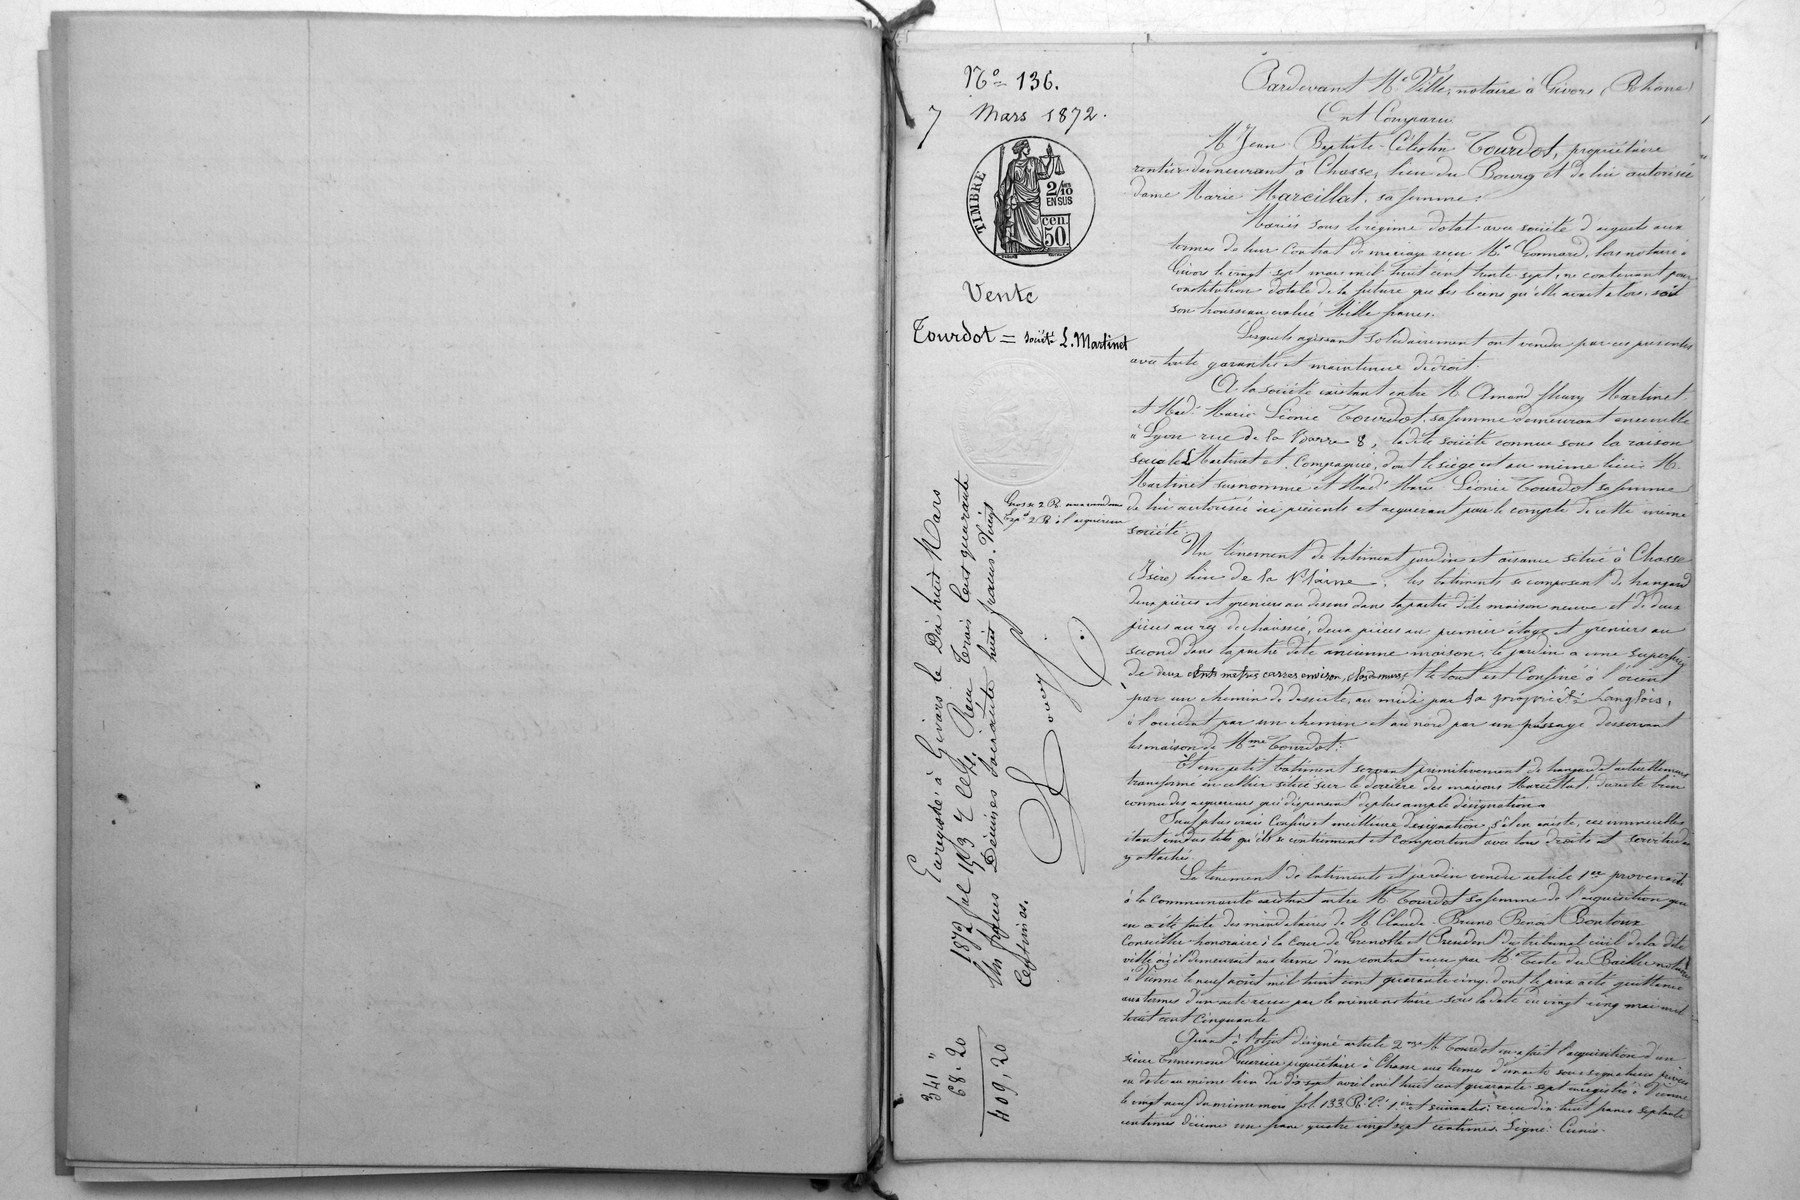 No 136.
7 Mars 1872.
TIMBRE
2/10
EN SUS
cen.
50.
Vente
Tourdot = société L. Martinet
Grosse 2 R. aux vendeurs
Exp.on 2 R. à l'acquéreur
Enregistré à Givors le Dix huit Mars
1872 fol 103
Reçu Trois Cent quarante
un francs Décimes Soixante huit francs Vingt
Centimes.
341 "
68.20
409,20
Pardevant Me Ville, notaire à Givors (Rhône)
Ont Comparu
M Jean Baptiste Célestin Tourdot, propriétaire
rentier demeurant à Chasse, lieu du Bourg et de lui autorisée
dame Marie Marcillat, sa femme.
Mariés sous le régime dotal avec société d'acquets aux
termes de leur contrat de mariage reçu Me Gonnard, lors notaire à
Givors le vingt sept mars mil huit cent trente sept, ne contenant pour
constitution dotale de la future que les biens qu'elle avait alors, soit
son trousseau évalué Mille francs.
Lesquels agissant solidairement ont vendu par ces présentes
avec toute garantie et maintenue de droit.
A la société existant entre M Amand fleury Martinet
et Made Marie Léonie Tourdot, sa femme demeurant ensemble
à Lyon rue de la Barre 8, la dite société connue sous la raison
sociale L Martinet et Compagnie, dont le siège est au même lieu; M.
Martinet susnommé et Made Marie Léonie Tourdot sa femme
de lui autorisée ici présents et acquerant pour le compte de cette même
société.
Un tènement de batiment jardin et aisance situé à Chasse
(Isère) lieu de la Plaine; les batiments se composent de hangard
deux pièces et greniers au dessus dans la partie dite maison neuve et de deux
pièces au rez de chaussée, deux pièces au premier étage et greniers au
second dans la partie dite ancienne maison; le jardin a une superficie
de deux cents mètres carrés environ, clos de murs; le tout est Confiné à l'orient
par un chemin de desserte, au midi par la propriété Langlois,
à l'occident par un chemin et au nord par un passage desservant
les maison de Mme Tourdot.
Et un petit batiment servant primitivement de hangard et actuellement
transformé en cellier situé sur le derrière des maisons Marcillat, du reste bien
connu des acquereurs qui dispensent de plus ample désignation.
Sauf plus vrais Confins et meilleure désignation, s'il en existe, ces immeubles
étant vendus tels qu'ils se contiennent et Comportent avec tous droits et servitudes
y attachés.
Le tènement de batiments et jardin vendu article 1er provenait
à la Communauté existant entre M Tourdot sa femme de l'acquisition qui
en a été faite des mandataires de M Claude Bruno Benoit Boutoux
Conseiller honoraire à la Cour de Grenoble et Président du tribunal civil de la dite
ville où il demeurait aux termes d'un contrat reçu par Me Teste du Bailler notaire
à Vienne le neuf août mil huit cent quarante cinq, dont le prix a été quittancé
aux termes d'un acte reçu par le même notaire sous la date du vingt cinq mai mil
huit cent cinquante
Quant à l'objet désigné article 2me M Tourdot en a fait l'acquisition d'un
sieur Ennemond Guerrier propriétaire à Chasse aux termes d'un acte sous signatures privées
en date au même lieu du dix sept avril mil huit cent quarante sept enregistré à Vienne
le vingt neuf du même mois fol. 133 R.o C.e 1ere et suivantes; reçu dix huit francs septante
centimes décime un franc quatre vingt sept centimes. Signé: Cunis.